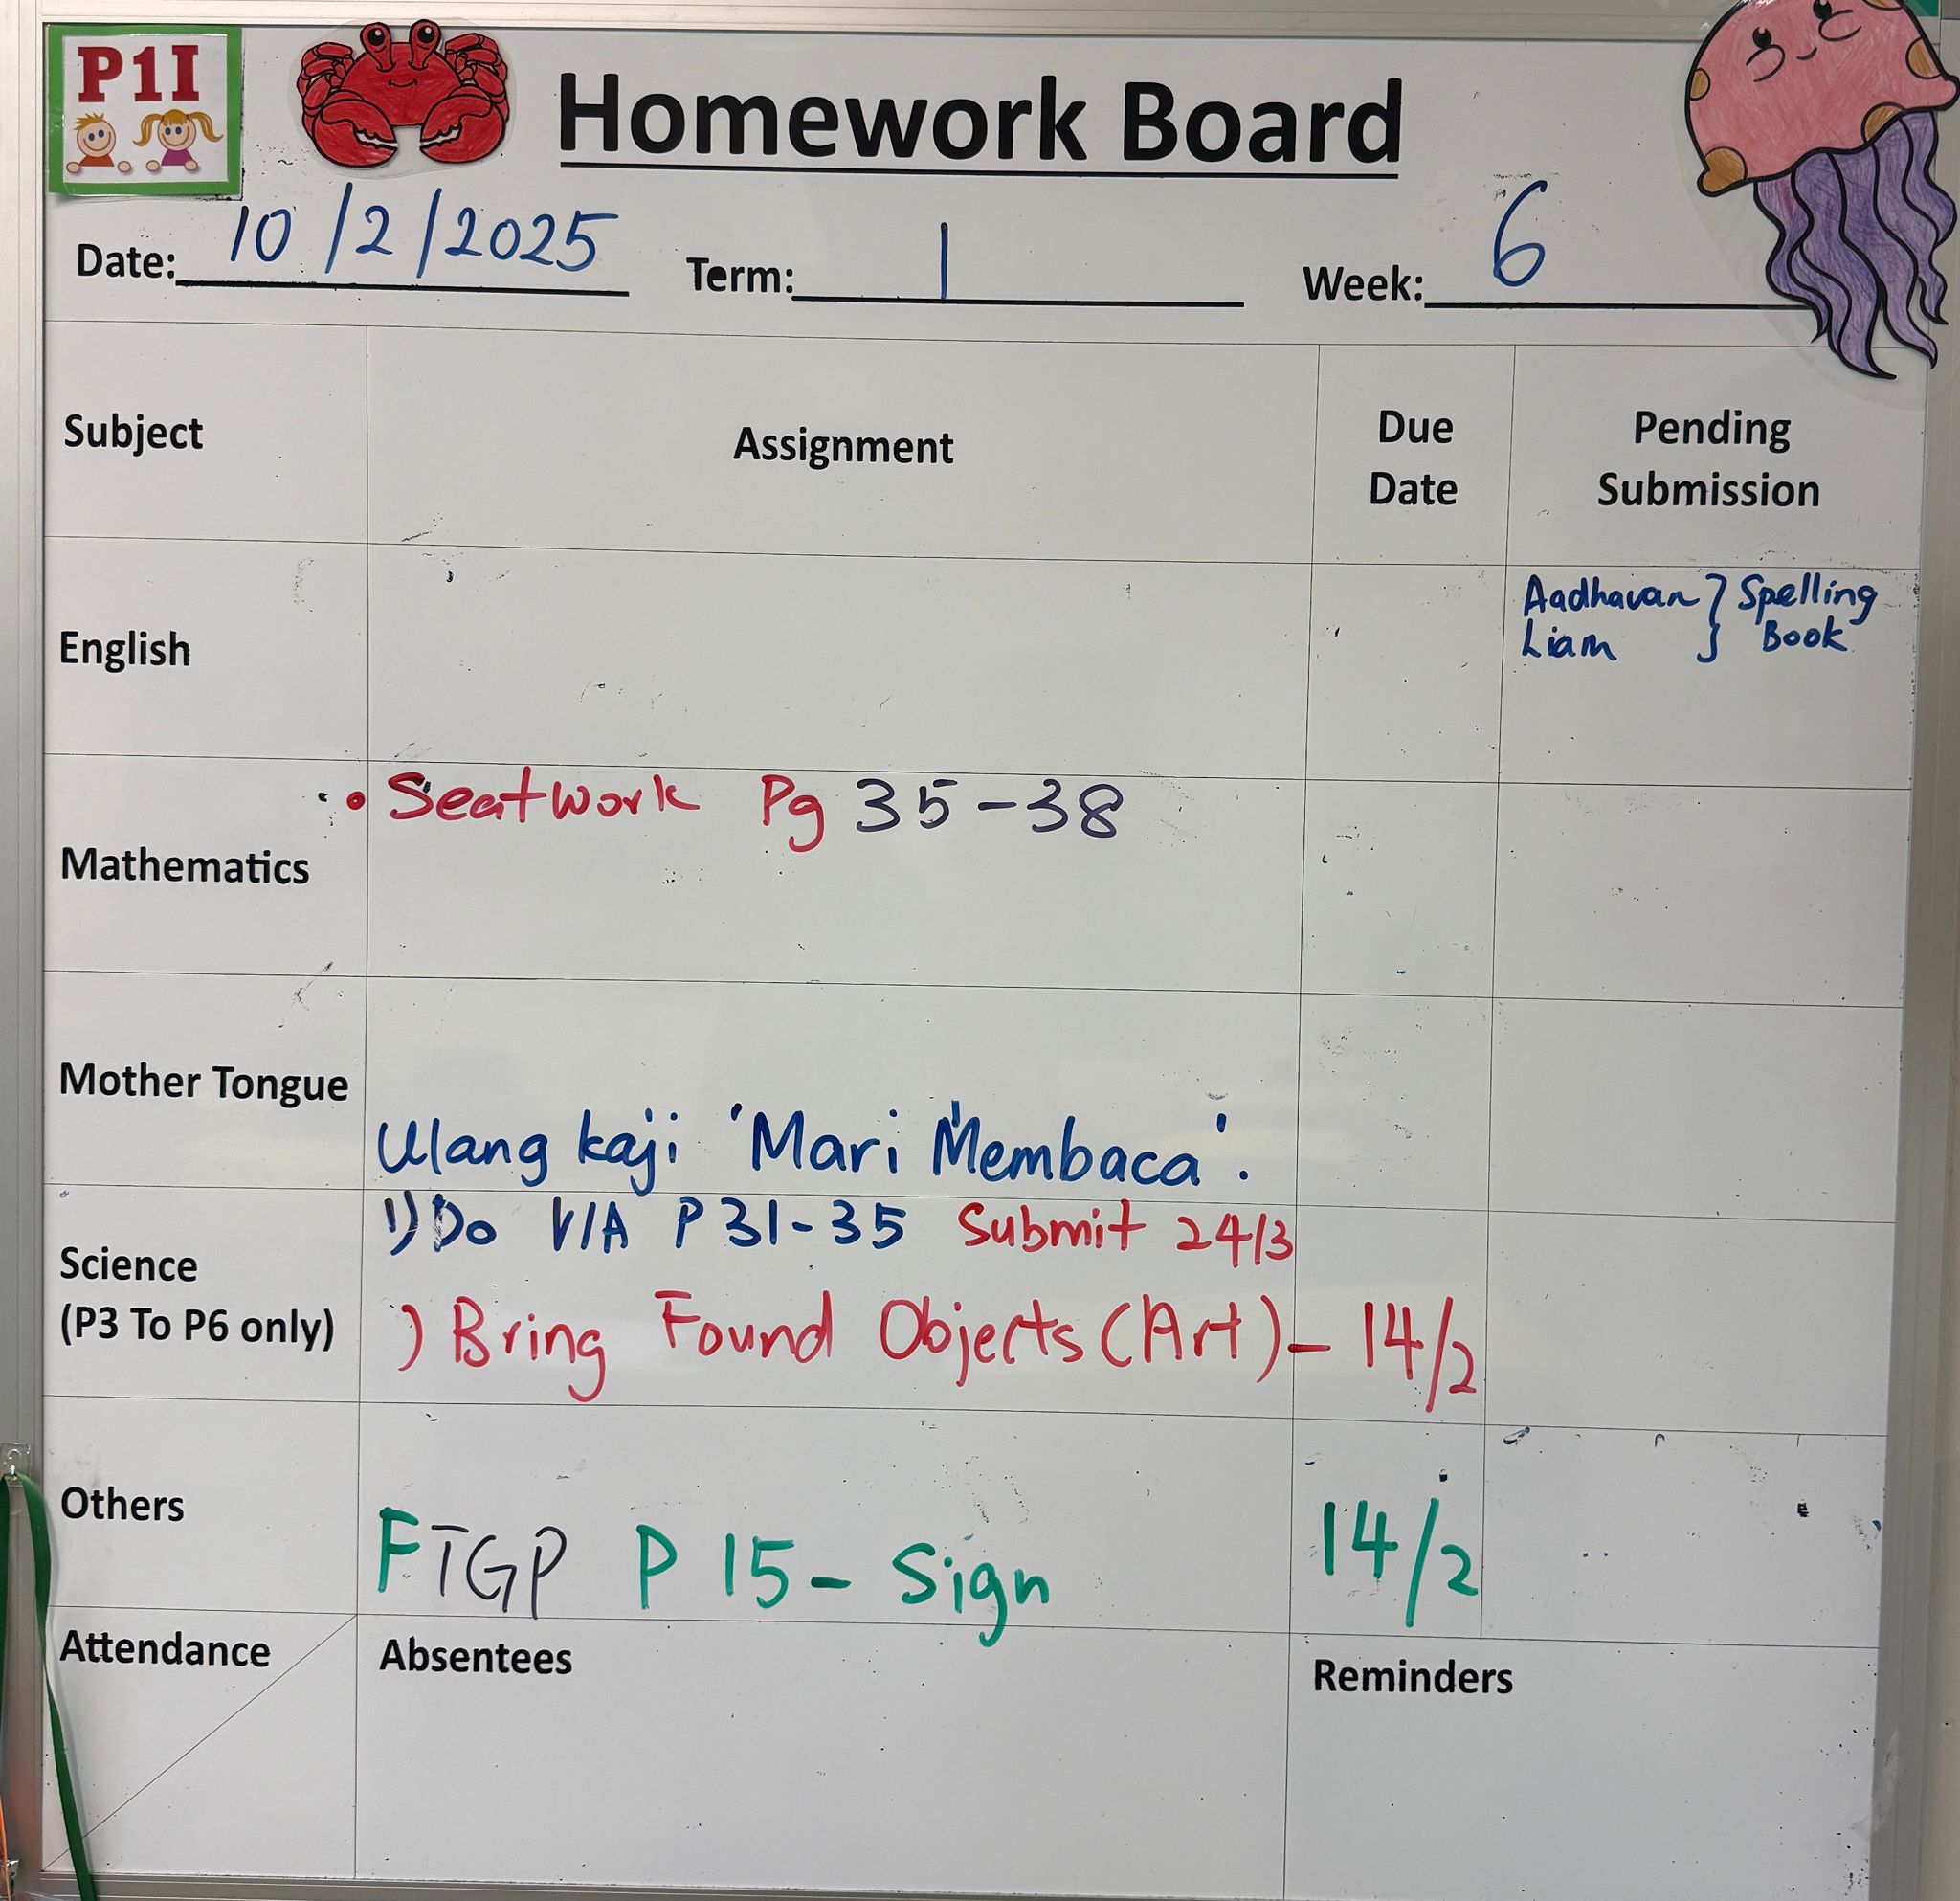 P1I
Homework Board
Date: 10/2/2025 Term: 1 Week: 6
Subject Assignment Due Date Pending Submission
English Aadhavan } Spelling
Liam } Book
Mathematics • Seatwork Pg 35-38
Mother Tongue Ulang kaji 'Mari Membaca'.
Science
(P3 To P6 only)
1) Do V/A P 31-35 Submit 24/3
) Bring Found Objects (Art) - 14/2
Others FTGP P 15 - Sign 14/2
Attendance Absentees Reminders